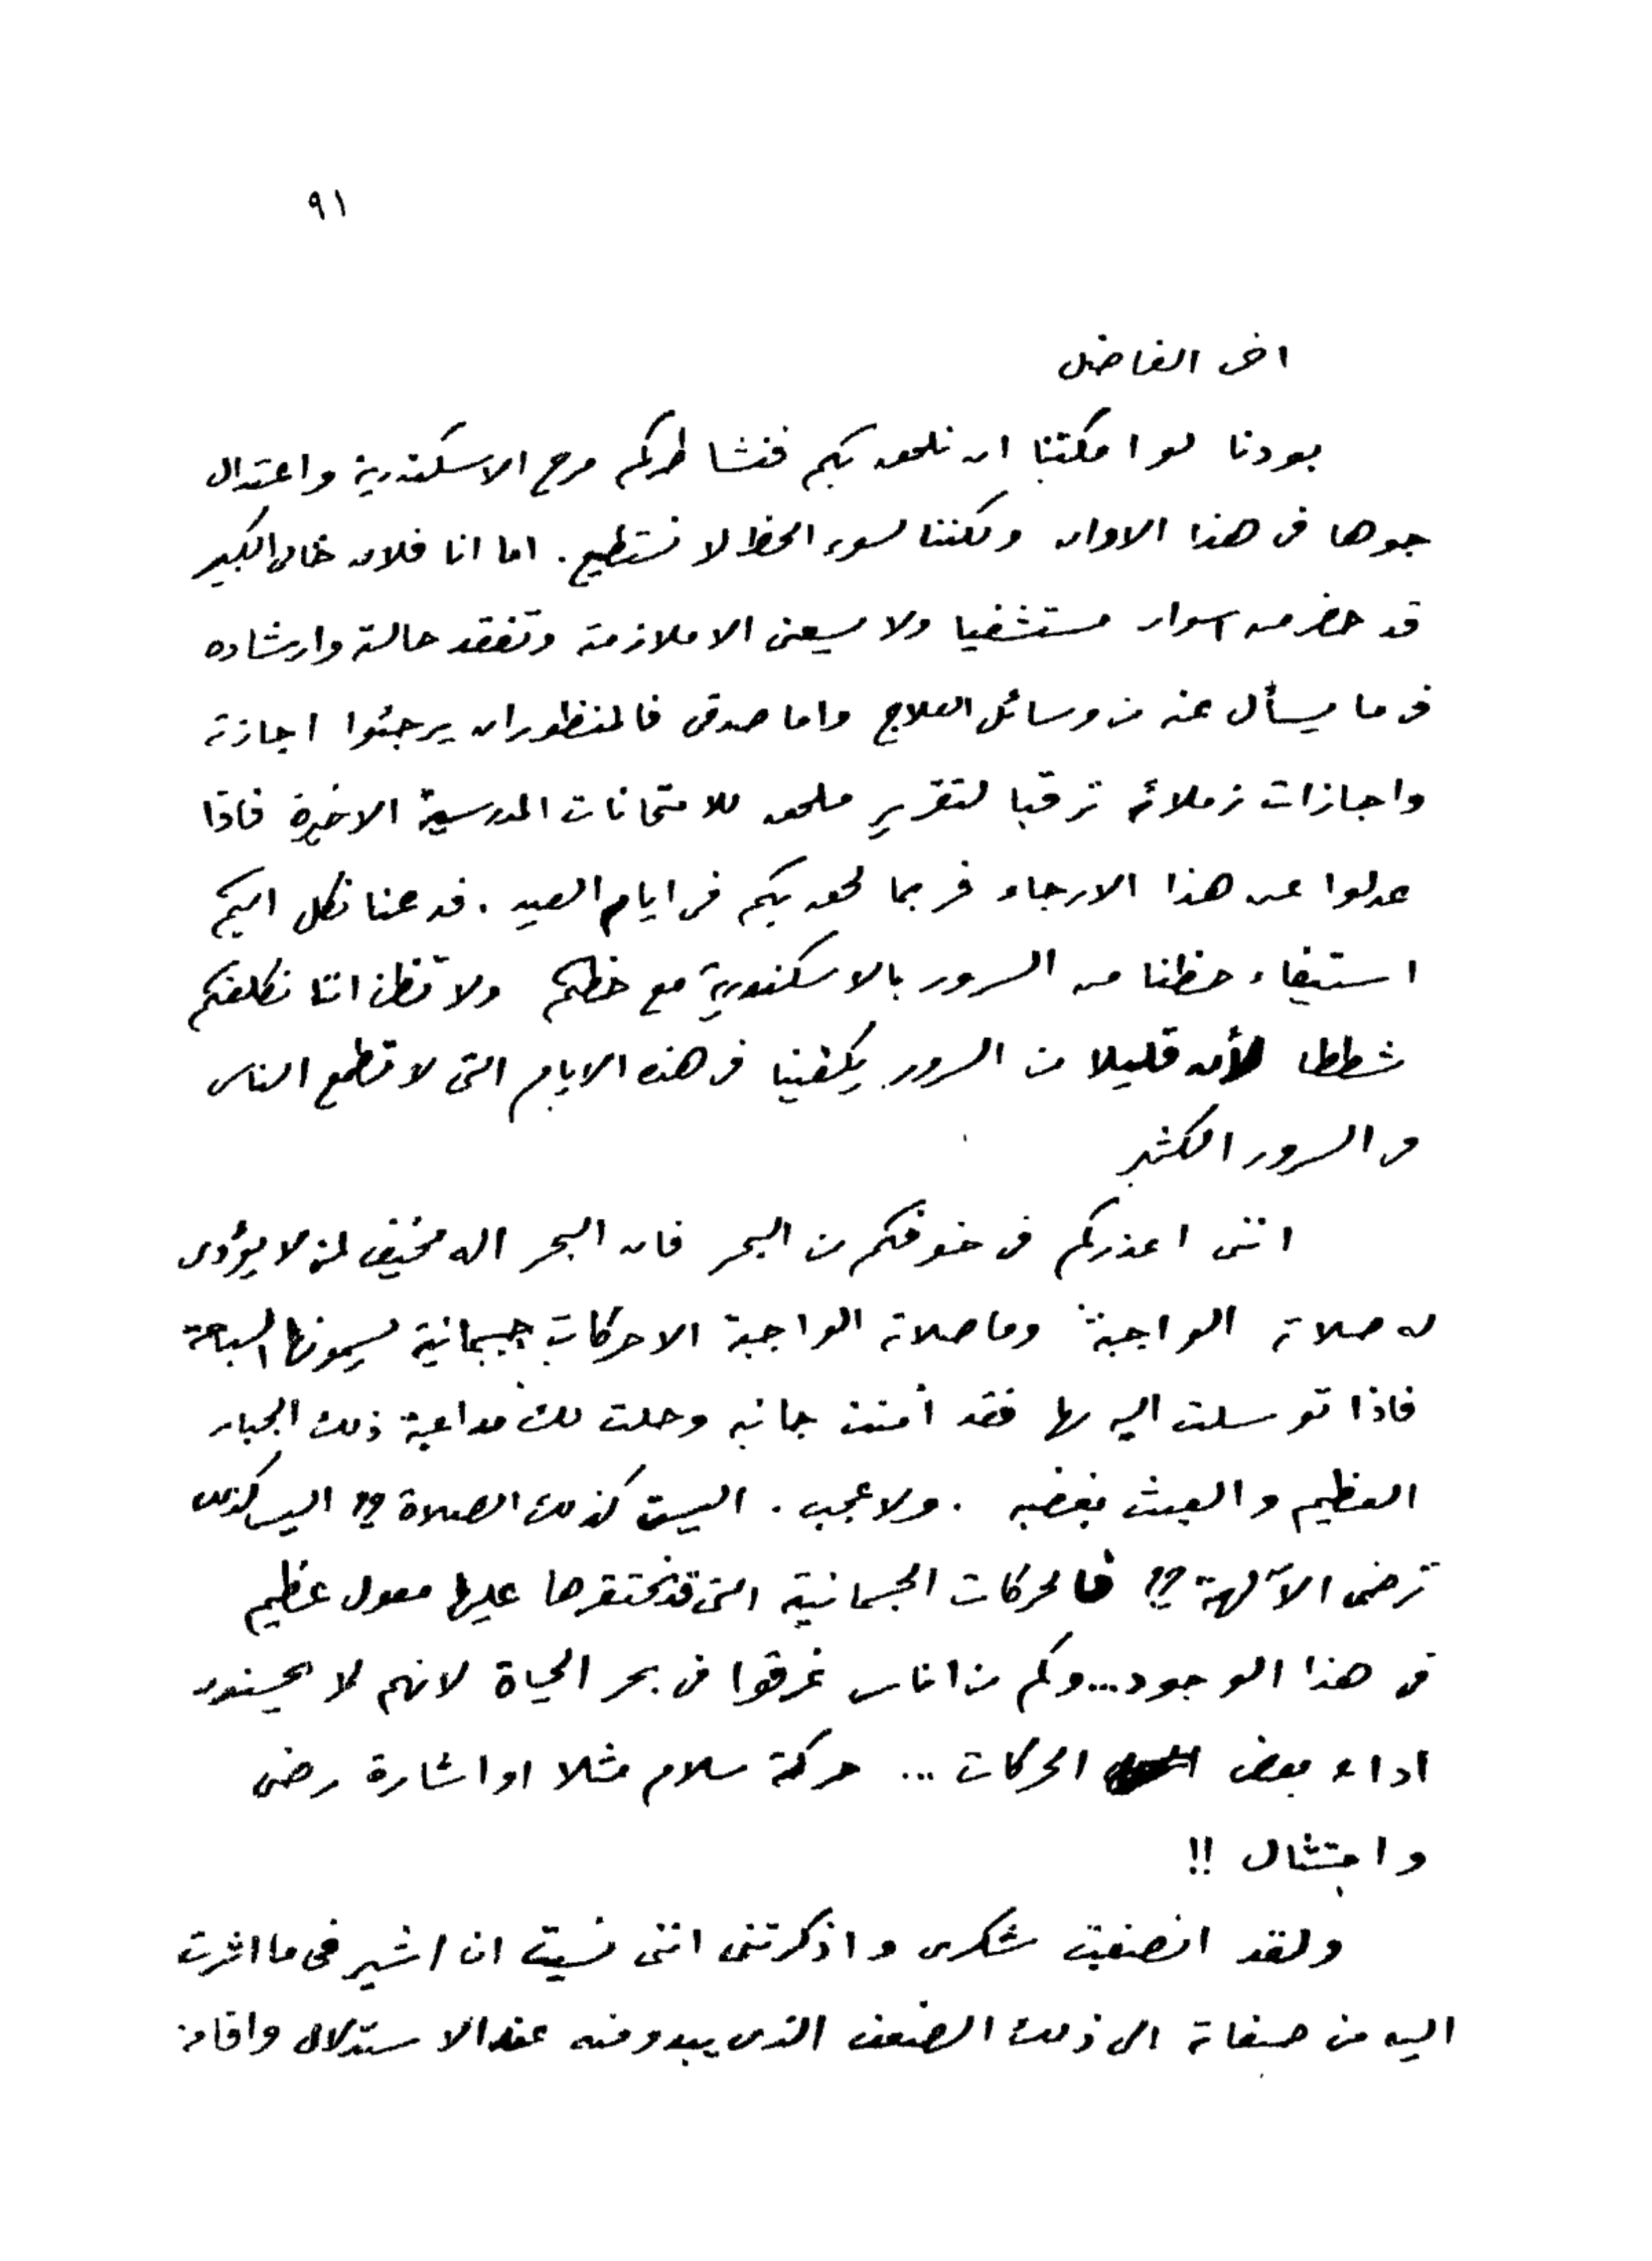 ٩١
اخى الفاضل
بودنا لو امكننا ان نلحق بكم فنشاطركم مرح الاسكندرية واعتدال
جوها فى هذا الاوان ولكننا لسوء الحظ لا نستطيع. اما انا فلان خالى الكبير
قد حضر من اسوان مستشفيا ولا يسعنى الا ملازمته وتفقد حالته وارشاده
فى ما يسأل عنه من وسائل العلاج واما صدقى فالمنظور ان يرجئوا اجازته
واجازات زملائه ترقبا لتقرير ملحق للامتحانات المدرسية الاخيرة فاذا
عدلوا عن هذا الارجاء فربما لحق بكم فى ايام العيد. فدعنا نكل اليكم
استيفاء حظنا من السرور بالاسكندرية مع حظكم ولا تظن اننا نكلفكم
شططا لأن قليلا من السرور يكفينا فى هذه الايام التى لا تطمع الناس
فى السرور الكثير
اننى اعذركم فى خوفكم من البحر فان البحر اله مخيف لمن لا يؤدى
له صلاته الواجبة وما صلاته الواجبة الا حركات جسمانية يسمونها السباحة
فاذا توسلت اليه بها فقد أمنت جانبه وحلت لك مداعبة ذلك الجبار
العظيم والعبث بغضبه. ولا عجب. اليست كذلك الصلاة ؟! اليس كذلك
ترضى الآلهة ؟! فالحركات الجسمانية التى قد نحتقرها عليها معول عظيم
فى هذا الوجود... وكم من اناس غرقوا فى بحر الحياة لانهم لا يحسنون
اداء بعض الحركات ... حركة سلام مثلا او اشارة رضى
وامتثال !!
ولقد انصفت شكرى واذكرتنى اننى نسيت ان اشير فى ما اشرت
اليه من صفاته الى ذلك الضعف الذى يبدو منه عند الاستدلال واقامة